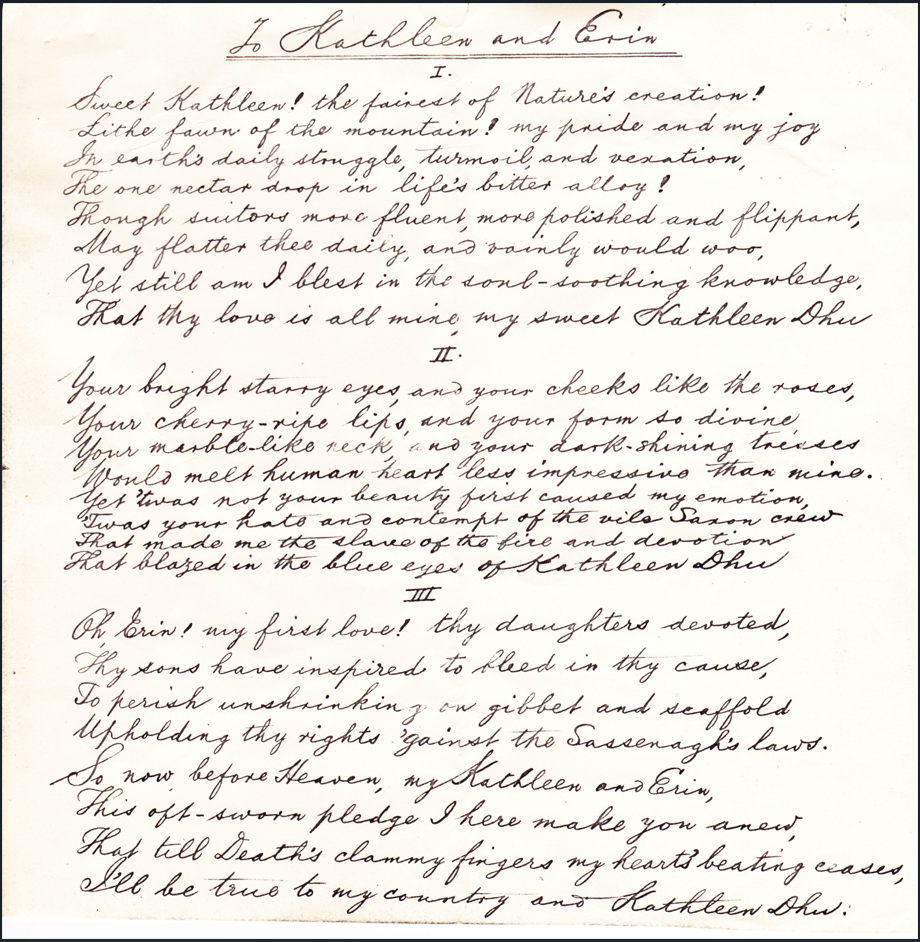 To Kathleen and Erin
I.
Sweet Kathleen! the fairest of Nature's creation!
Lithe fawn of the mountain! my pride and my joy
In earth's daily struggle, turmoil, and vexation,
The one nectar drop in life's bitter alloy!
Though suitors more fluent, more polished and flippant,
May flatter thee daily, and vainly would woo,
Yet still am I blest in the soul-soothing knowledge,
That thy love is all mine, my sweet Kathleen Dhu
II.
Your bright starry eyes, and your cheeks like the roses,
Your cherry-ripe lips, and your form so divine,
Your marble-like neck, and your dark-shining tresses
Would melt human heart less impressive than mine.
Yet 'twas not your beauty first caused my emotion,
'Twas your hate and contempt of the vile Saxon crew
That made me the slave of the fire and devotion
That blazed in the blue eyes of Kathleen Dhu
III
Oh, Erin! my first love! thy daughters devoted,
Thy sons have inspired to bleed in thy cause,
To perish unshrinking on gibbet and scaffold
Upholding thy rights 'gainst the Sassenagh's laws.
So now, before Heaven, my Kathleen and Erin,
This oft-sworn pledge I here make you anew,
That till Death's clammy fingers my heart's beating ceases,
I'll be true to my country and Kathleen Dhu.